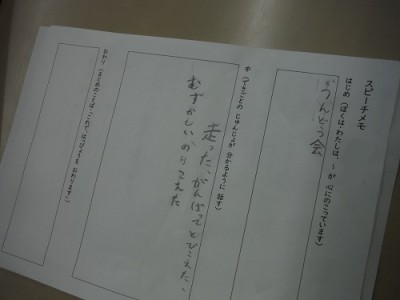 スピーチメモ
はじめ(ぼくは、わたしは、~が 心にのこっています)
うんどう会
中(できごとの じゅんじょが 分かるように 話す)
走った、がんばってとびこえた、
むずかしい、のりこえた
おわり(まとめのことば、これで、はっぴょうを おわります)